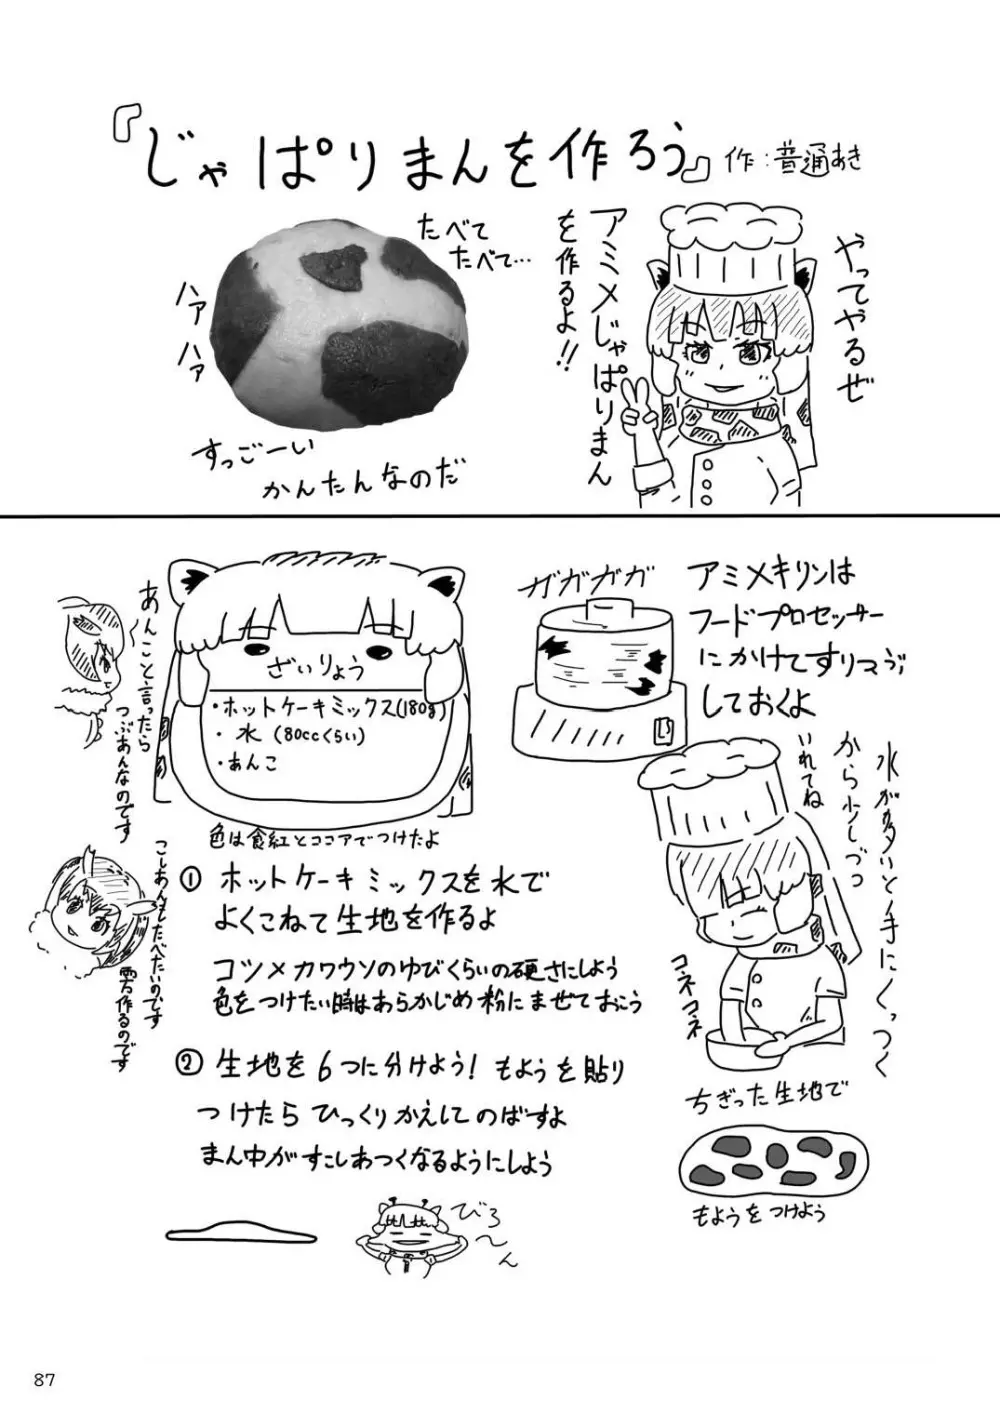 『じゃぱりまんを作ろう』
作：普通あき
やってやるぜ
アミメじゃぱりまん
を作るよ!!
たべて
たべて…
ハァ
ハァ
すっごーい
かんたんなのだ
アミメキリンは
フードプロセッサー
にかけてすりつぶ
しておくよ
ガガガガ
ざいりょう
・ホットケーキミックス(180g)
・水(80ccくらい)
・あんこ
色は食紅とココアでつけたよ
あんこと言ったら
つぶあんなのです
こしあんもたべたいのです
作るのです
水が多いと手にくっつく
から少しづつ
いれてね
コネコネ
①ホットケーキミックスを水で
よくこねて生地を作るよ
コツメカワウソのゆびくらいの硬さにしよう
色をつけたい時はあらかじめ粉にまぜておこう
②生地を6つに分けよう!もようを貼り
つけたらひっくりかえしてのばすよ
まん中がすこしあつくなるようにしよう
ちぎった生地で
もようをつけよう
びろ
〜ん
87